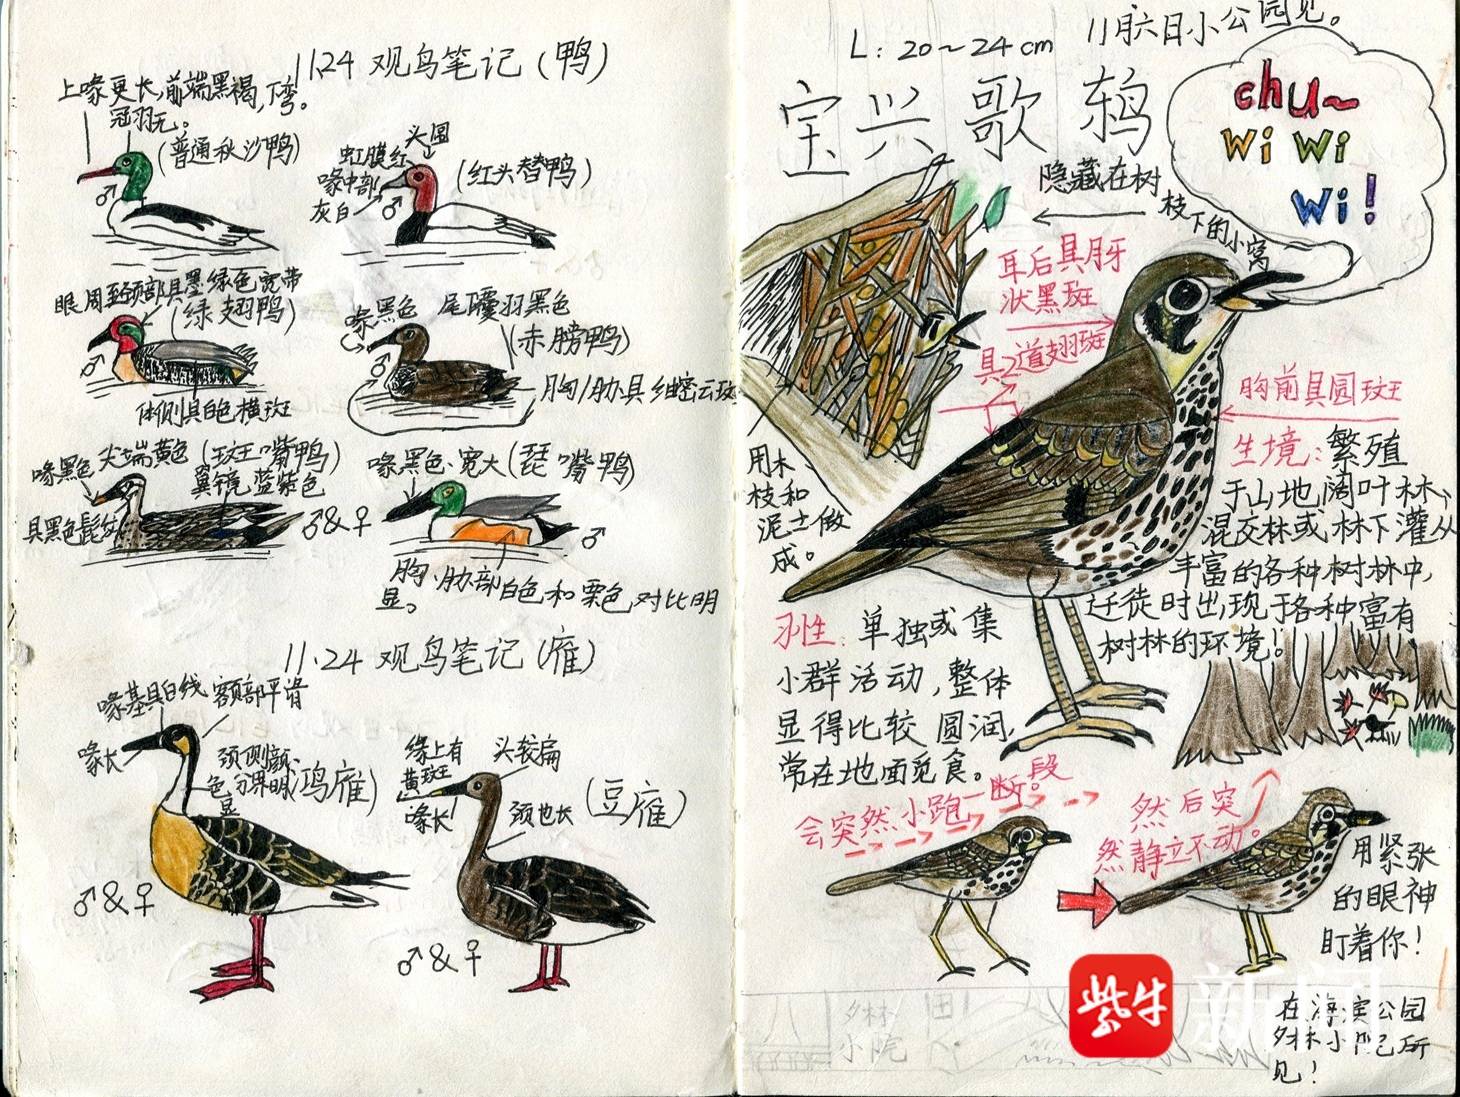 11.24 观鸟笔记(鸭)
上喙更长,前端黑褐,下弯。
冠羽无。
(普通秋沙鸭)
♂
头圆
虹膜红
喙中部
灰白
♂
(红头替鸭)
眼周至颈部具墨绿色宽带
(绿翅鸭)
♂
体侧具白色横斑
喙黑色
尾下覆羽黑色
(赤膀鸭)
♂
胸/胁具细密云斑
喙黑色 尖端黄色 (斑嘴鸭)
翼镜蓝紫色
具黑色髭纹
♂&♀
喙黑色、宽大(琵嘴鸭)
♂
胸、胁部白色和栗色对比明
显。
11.24 观鸟笔记(雁)
喙基具白线
额部平滑
喙长
颈侧颜
色分界明
显
(鸿雁)
♂&♀
喙上有
黄斑
喙长
头较扁
颈也长
(豆雁)
♂&♀
L: 20~24 cm
11月六日小公园见。
宝兴歌鸫
chu~
wi wi
wi!
隐藏在树
枝下的小窝
耳后具月牙
状黑斑
具2道翅斑
胸前具圆斑
用木
枝和
泥土做
成。
生境:繁殖
于山地阔叶林、
混交林或林下灌丛
丰富的各种树林中,
迁徒时出现于各种富有
树林的环境!
习性:单独或集
小群活动,整体
显得比较圆润,
常在地面觅食。
会突然小跑一段
然后突
然静立不动。
用紧张
的眼神
盯着你!
在海滨公园
小院所
见!
小院
紫牛
新闻